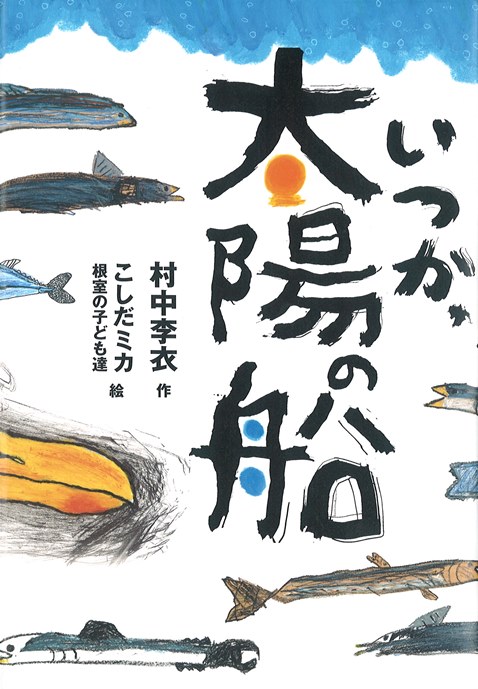 いつか、
太陽の船
村中李衣 作
こしだミカ
根室の子ども達 絵